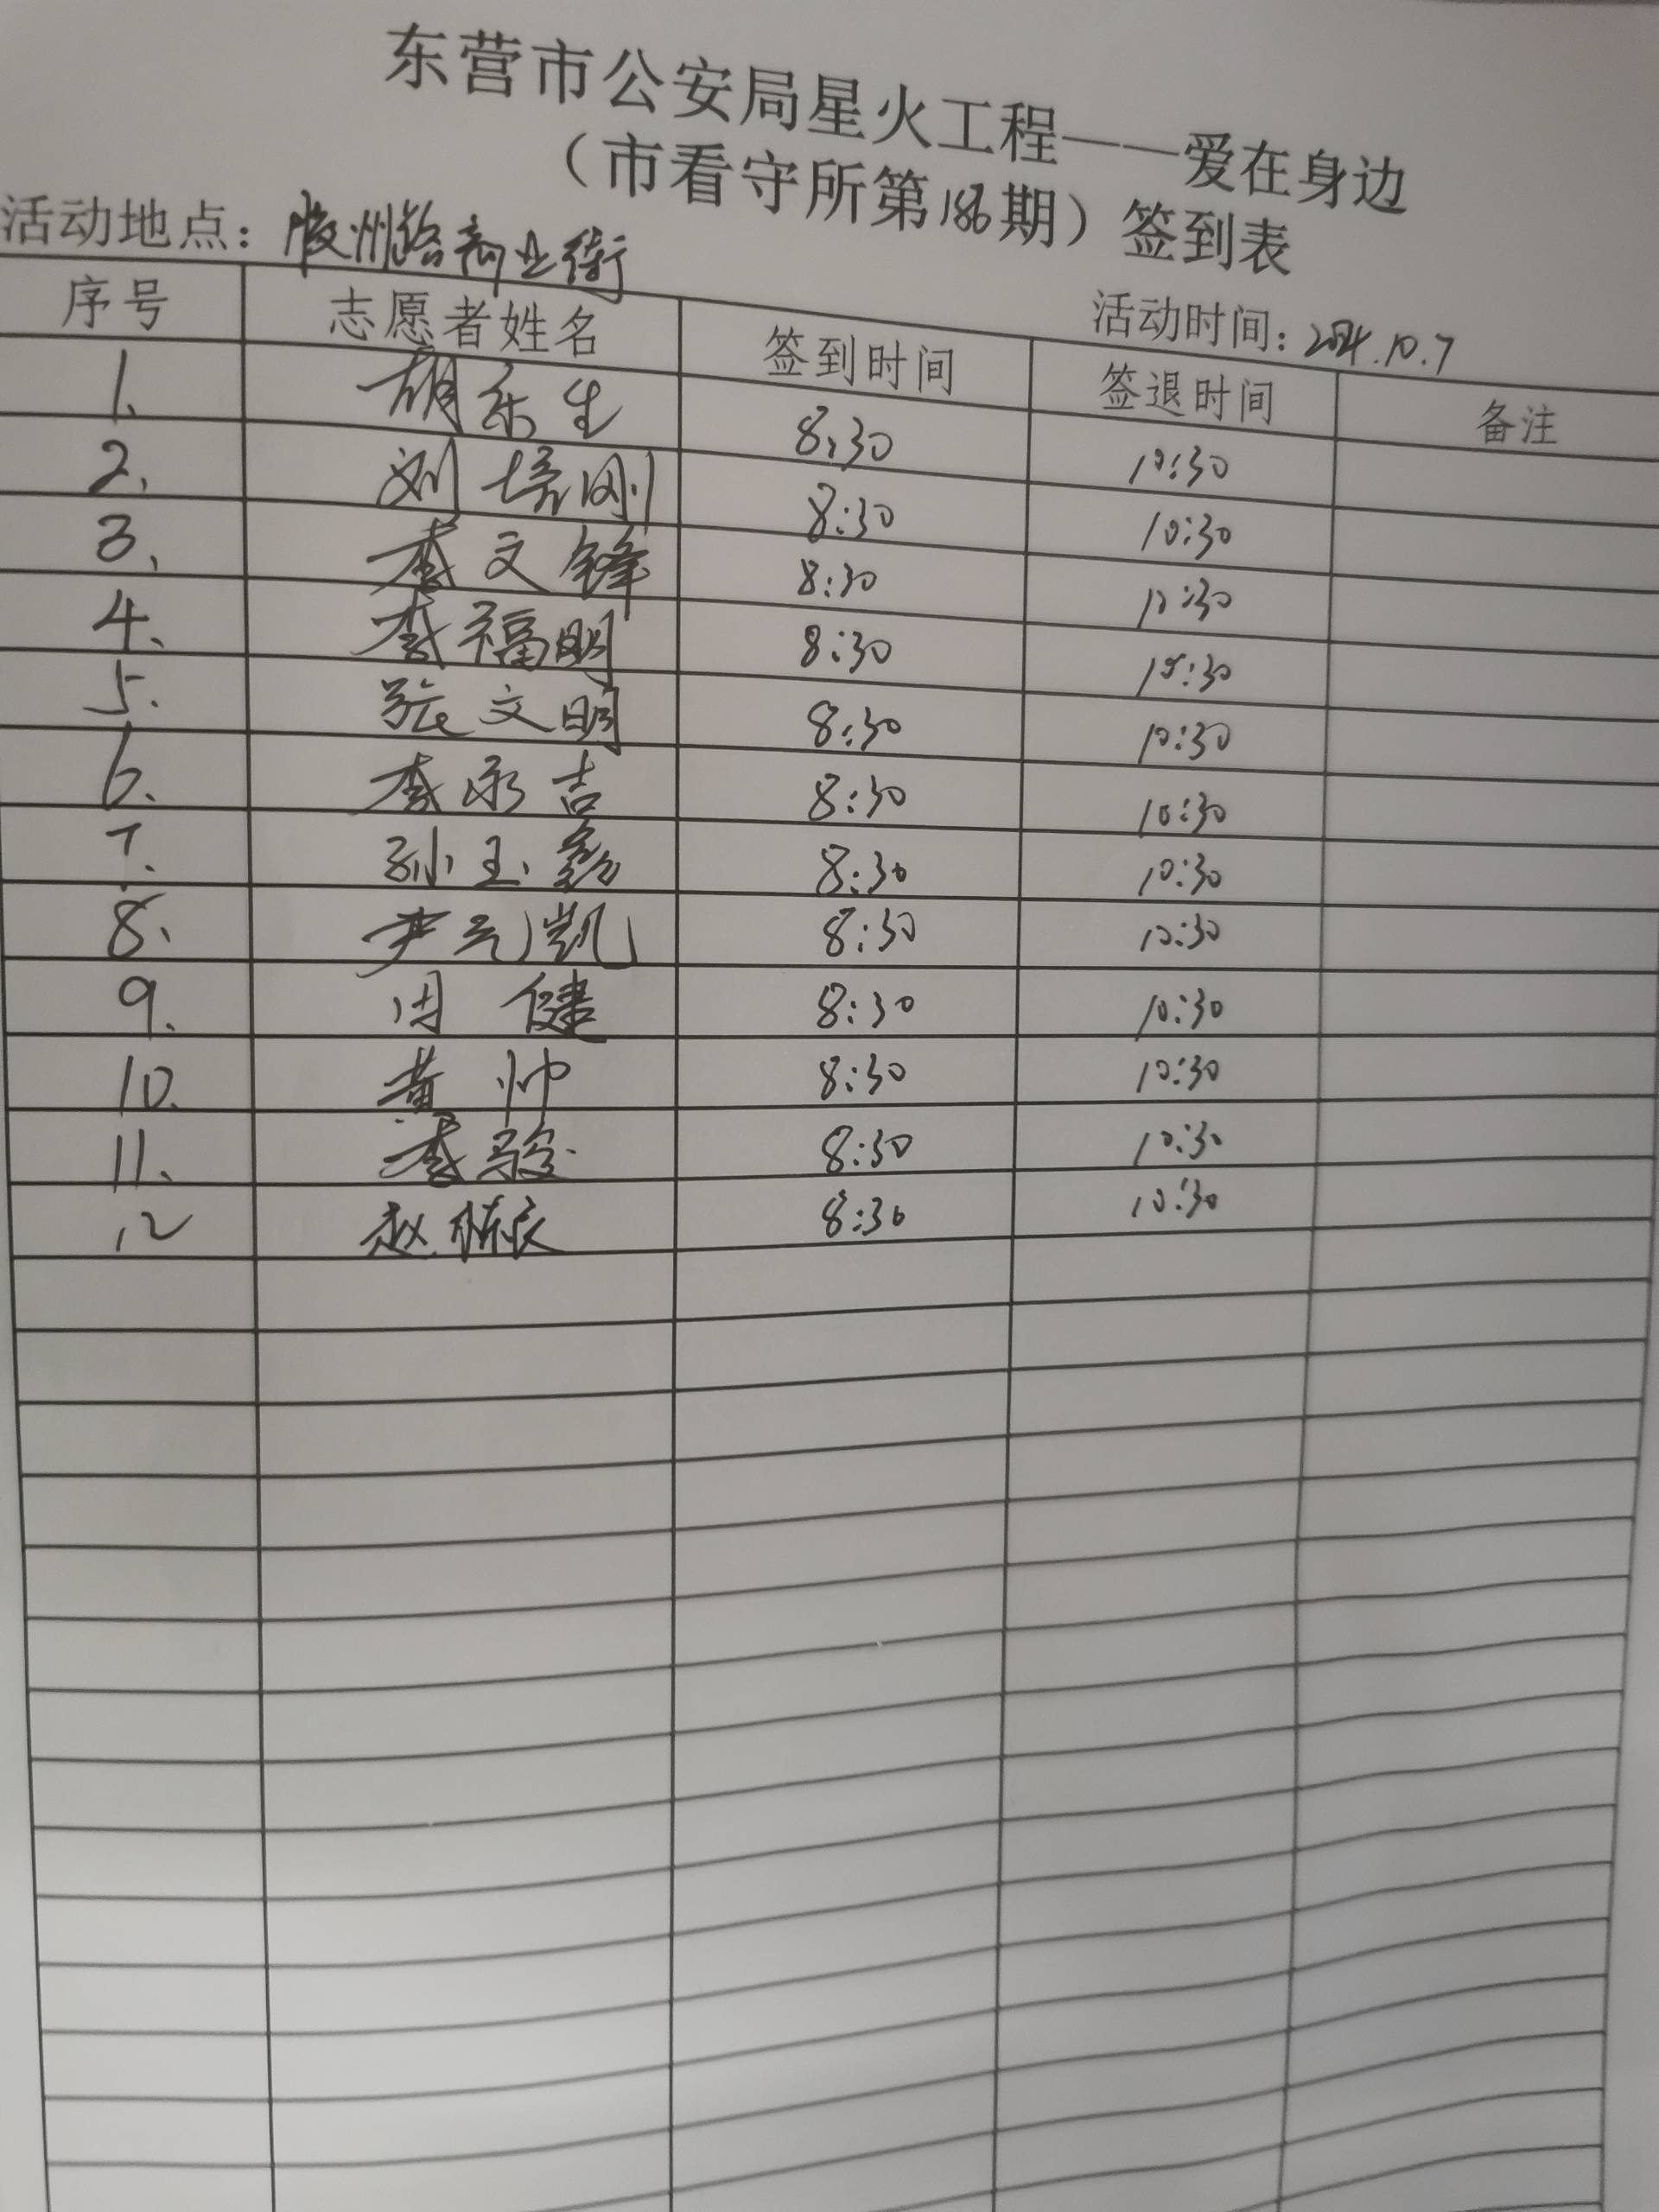 东营市公安局星火工程——爱在身边
（市看守所第186期）签到表
活动地点：胶州路商业街
活动时间：2024.10.7
序号 志愿者姓名 签到时间 签退时间 备注
1. 胡乐生 8:30 10:30
2. 刘培刚 8:30 10:30
3. 李文锋 8:30 10:30
4. 李福明 8:30 10:30
5. 张文明 8:30 10:30
6. 李永吉 8:30 10:30
7. 孙玉 8:30 10:30
8. 尹元凯 8:30 10:30
9. 田健 8:30 10:30
10. 黄帅 8:30 10:30
11. 李骏 8:30 10:30
12 赵栋良 8:30 10:30